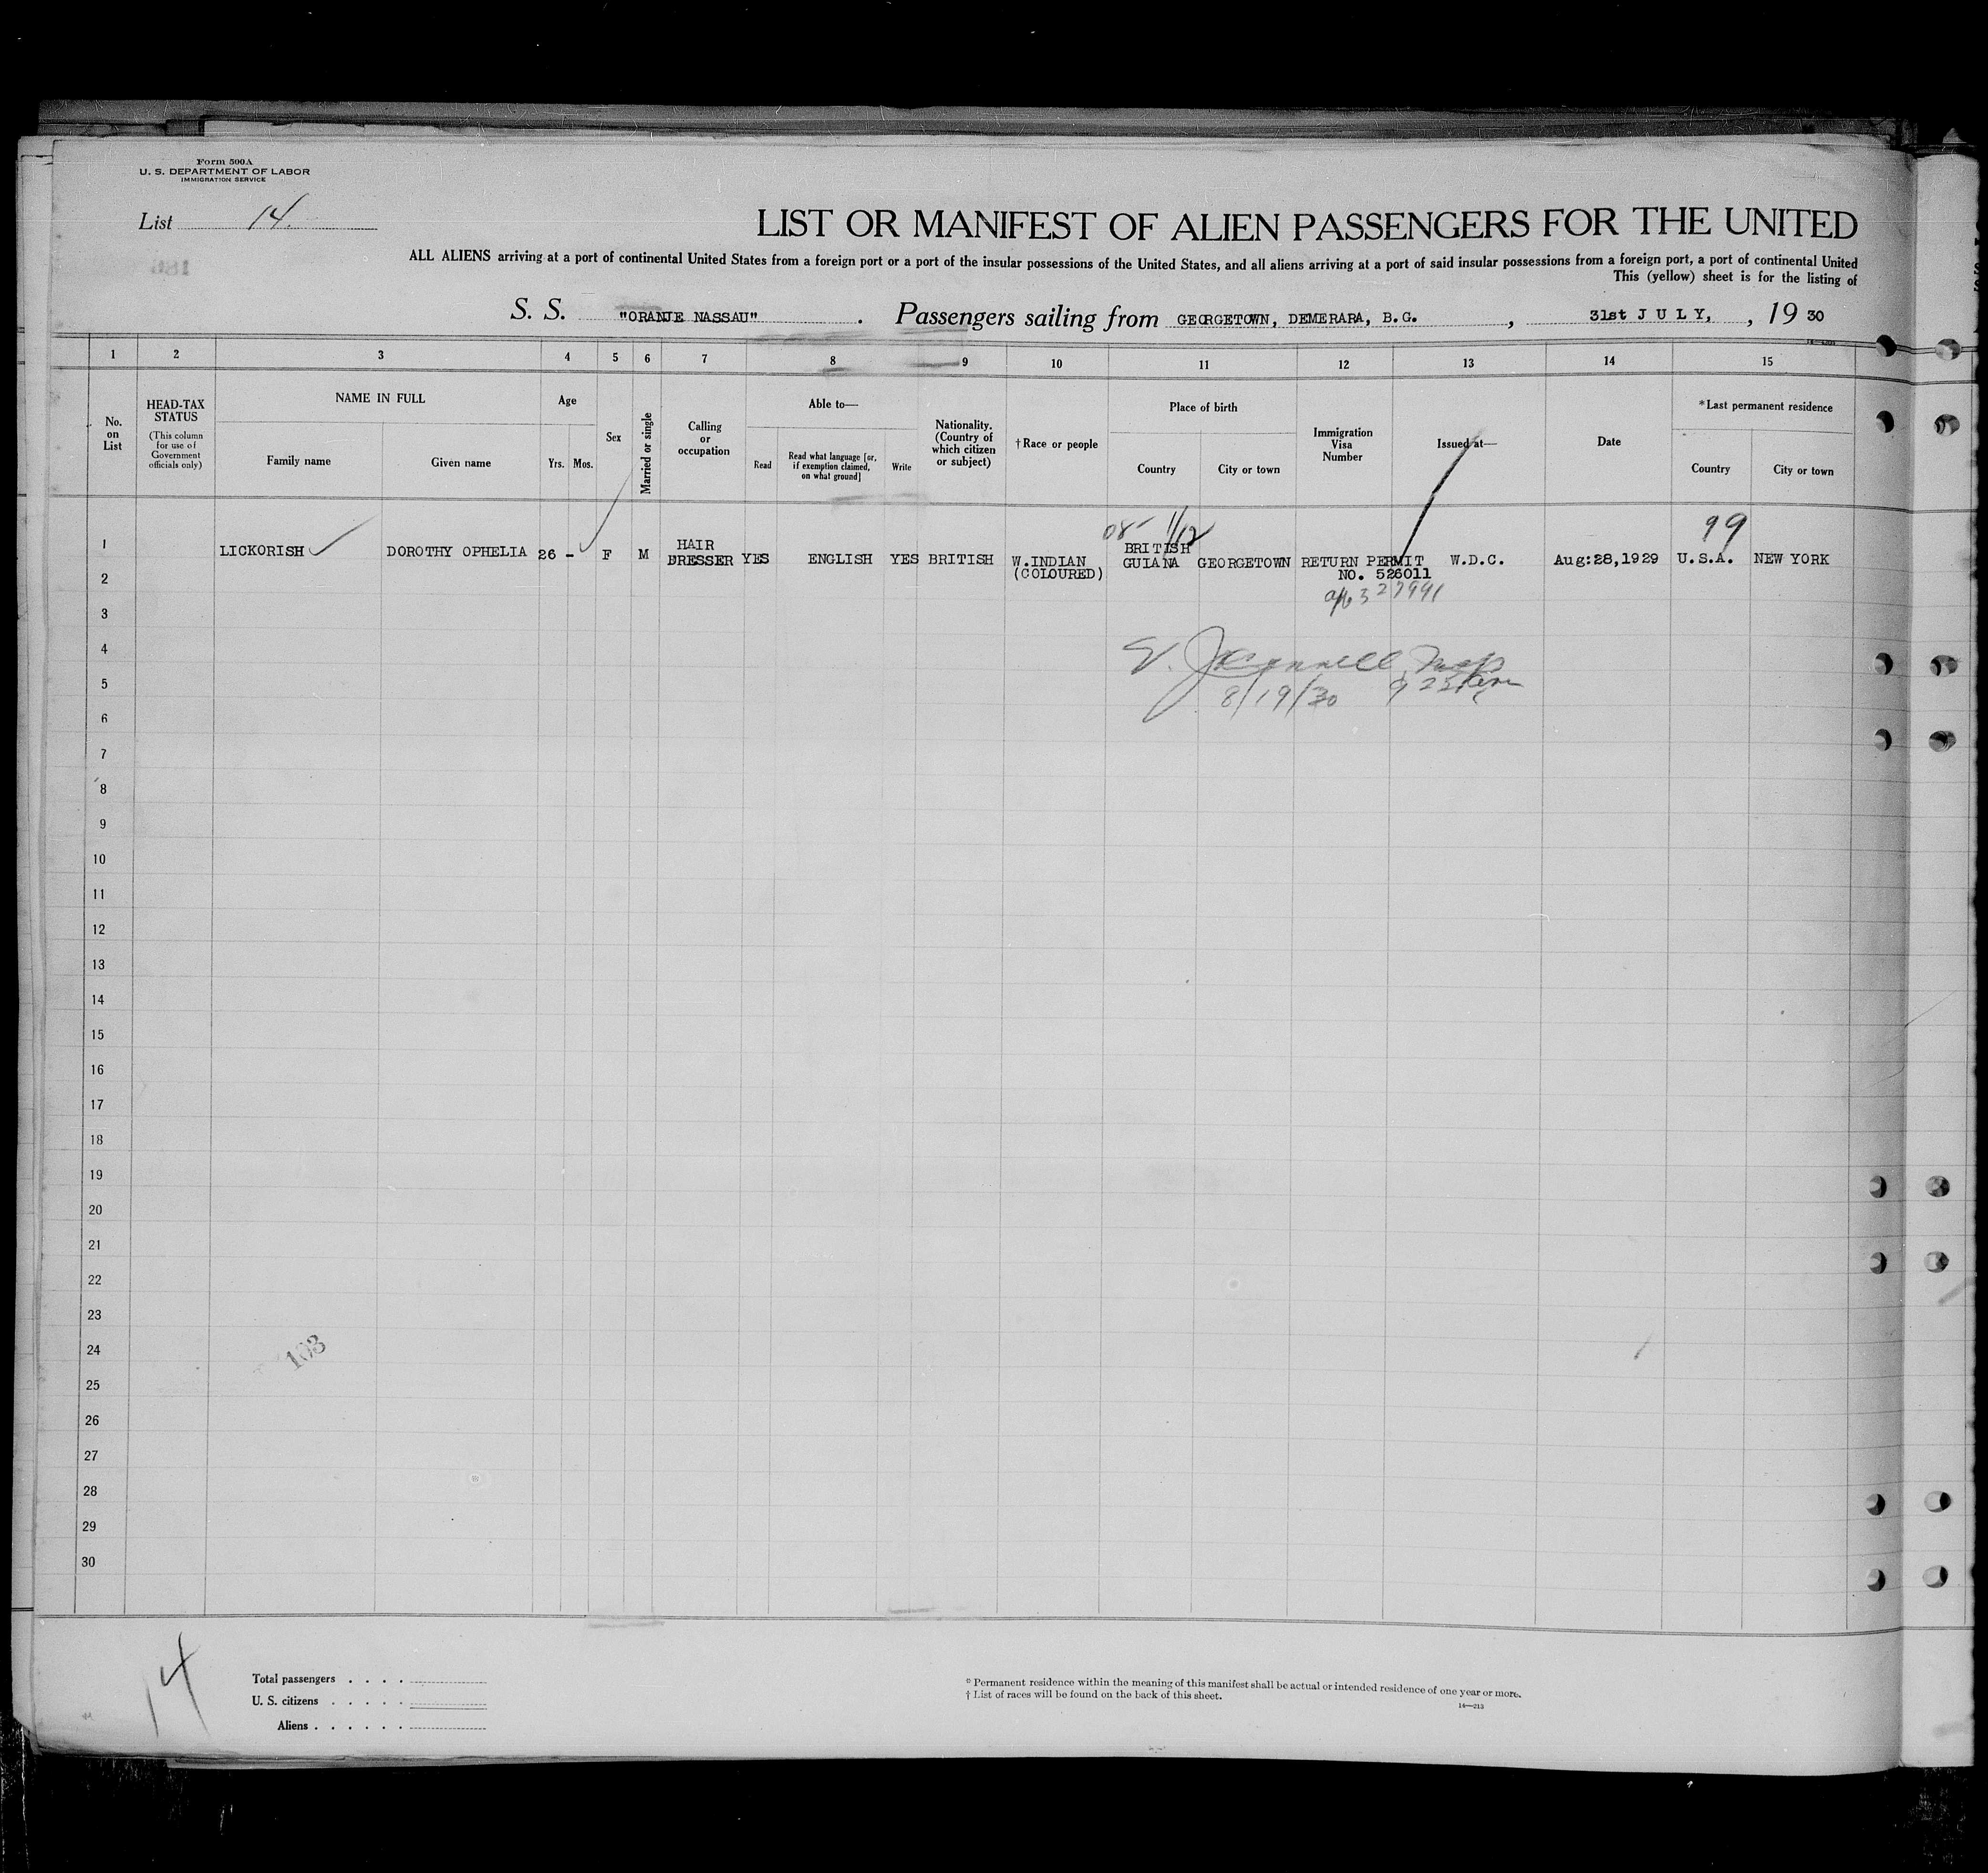 Form 500A
U. S. DEPARTMENT OF LABOR
IMMIGRATION SERVICE
List 14.
LIST OR MANIFEST OF ALIEN PASSENGERS FOR THE UNITED
ALL ALIENS arriving at a port of continental United States from a foreign port or a port of the insular possessions of the United States, and all aliens arriving at a port of said insular possessions from a foreign port, a port of continental United
This (yellow) sheet is for the listing of
S. S. "ORANJE NASSAU" . Passengers sailing from GEORGETOWN, DEMERARA, B.G. , 31st JULY, , 19 30
1 2 3 4 5 6 7 8 9 10 11 12 13 14 15
No. on List
HEAD-TAX STATUS
(This column for use of Government officials only)
NAME IN FULL
Family name
Given name
Age
Yrs.
Mos.
Sex
Married or single
Calling or occupation
Able to—
Read
Read what language [or, if exemption claimed, on what ground]
Write
Nationality. (Country of which citizen or subject)
†Race or people
Place of birth
Country
City or town
Immigration Visa Number
Issued at—
Date
*Last permanent residence
Country
City or town
08- 1/12 99
1 LICKORISH DOROTHY OPHELIA 26 - F M HAIR DRESSER YES ENGLISH YES BRITISH W.INDIAN (COLOURED) BRITISH GUIANA GEORGETOWN RETURN PERMIT NO. 526011 W.D.C. Aug:28,1929 U.S.A. NEW YORK
2
327991
3
4
5
8/19/30
6
7
8
9
10
11
12
13
14
15
16
17
18
19
20
21
22
23
24
103
25
26
27
28
29
30
14
Total passengers . . . .
U. S. citizens . . . . .
Aliens . . . . . .
* Permanent residence within the meaning of this manifest shall be actual or intended residence of one year or more.
† List of races will be found on the back of this sheet.
14—213